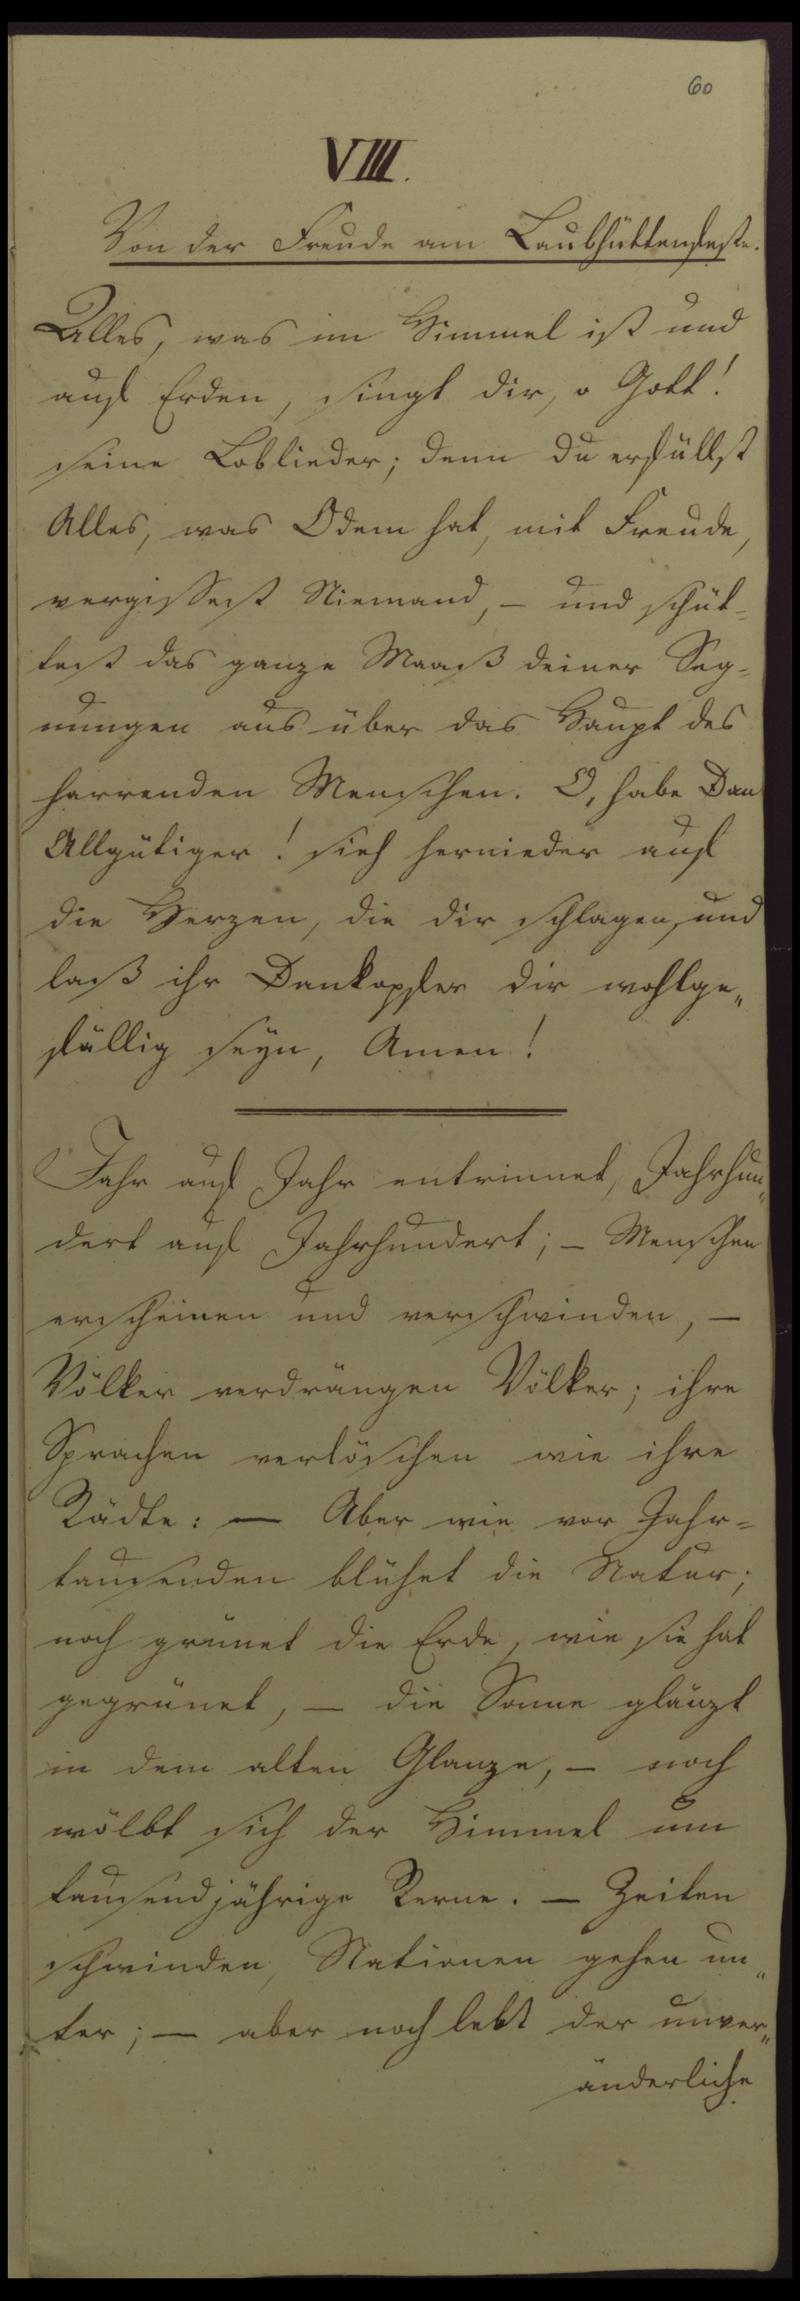 60
VIII.
Von der Freude am Laubhüttenfeste.
Alles, was im Himmel ist und
auf Erden, singt dir, o Gott!
seine Loblieder; denn du erfüllst
Alles, was Odem hat, mit Freude,
vergissest Niemand, – und schüt-
test das ganze Maaß deiner Seg-
nungen aus über das Haupt des
harrenden Menschen. O, habe Dan
Allgütiger! sieh hernieder auf
die Herzen, die dir schlagen, und
laß ihr Dankopfer dir wohlge„
fällig seyn, Amen!
Jahr auf Jahr entrinnet, Jahrhun„
dert auf Jahrhundert; – Menschen
erscheinen und verschwinden, –
Völker verdrängen Völker; ihre
Sprachen verlöschen wie ihre
Städte: – Aber wie vor Jahr-
tausenden blühet die Natur;
noch grünet die Erde, wie sie hat
gegrünet, – die Sonne glänzt
in dem alten Glanze, – noch
wölbt sich der Himmel um
tausendjährige Sterne. – Zeiten
schwinden, Nationen gehen un„
ter; – aber noch lebt der unver„
änderliche